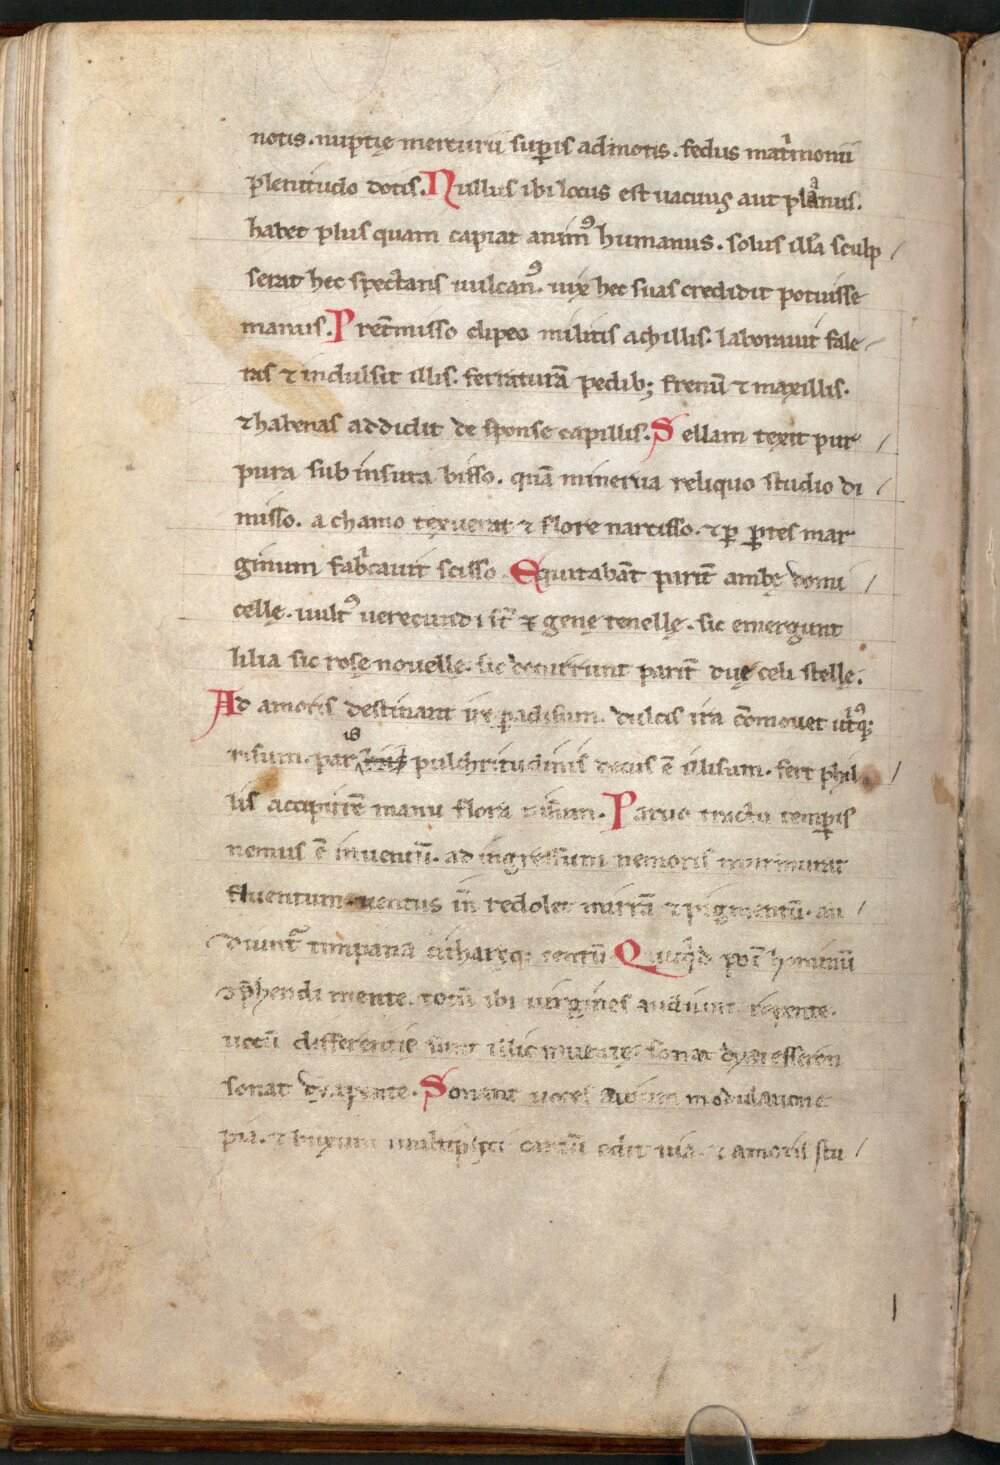 notis. nuptię mercurii supis admotis. fedus matͥmonii
plenitudo dotis. Nullus ibi locus est uacuus aut plaͣnus.
habet plus quam capiat animꝰ humanus. solus illa sculp /
serat hec spectans uulcanꝰ. uix hec suas credidit potuisse
manus. Pret̄misso clipeo militis achillis. laborauit fale /
ras ⁊ indulsit illis. ferraturā pedib; frenū ⁊ maxillis.
⁊ habenas addidit de sponse capillis. Sellam texit pur /
pura subinsuta bisso. quā minerua reliquo studio di /
misso. achamo texuerat ⁊ flore narcisso. ⁊ ꝑ ꝑtes mar
ginum fabͥcauit scisso. Equitabāt parit̄ ambę domi /
cellę. uultꝰ uerecundi st̄ ⁊ genę tenellę. sic emergunt
lilia sic rosę nouellę. sic decurrunt parit̄ duę celi stellę.
Ad amoris destinant ire paradisum. dulcis ira cōmouet utͥꝗ;
risum. par is pulchritudinis decus ē illisum. fert phil /
lis accipitrē manu flora nisum. Paruo tractu temꝑis
nemus ē inuentū. ad ingressum nemoris murmurat
fluentum. uentus īn redolet mirrā ⁊ pigmentū. au /
diunt̄ timpana citharęq; centū. Quicqͥd pot̄ hominū
ꝯp̄hendi mente. totū ibi uirgines audiunt repente.
uocū differentię sunt illic inuentę. sonat dyatesseron
sonat dyapente. Sonant uoces auium modulatione
pia. ⁊ buxum multiplici cantū edit uia. ⁊ amoris stu /